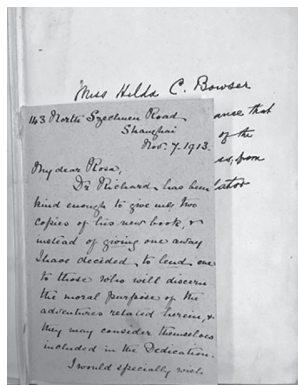 Miss Hilda C. Bowser
143 North Szechuen Road
Shanghai
Nov. 7. 1913.
My dear Rosa,
Dr Richard, has been
kind enough to give me two
copies of his new book, &
instead of giving one away
I have decided to lend one
to those who will discern
the moral purpose of the
adventures related herein, &
they may consider themselves
included in the Dedication.
I would specially wish
that
of the
from